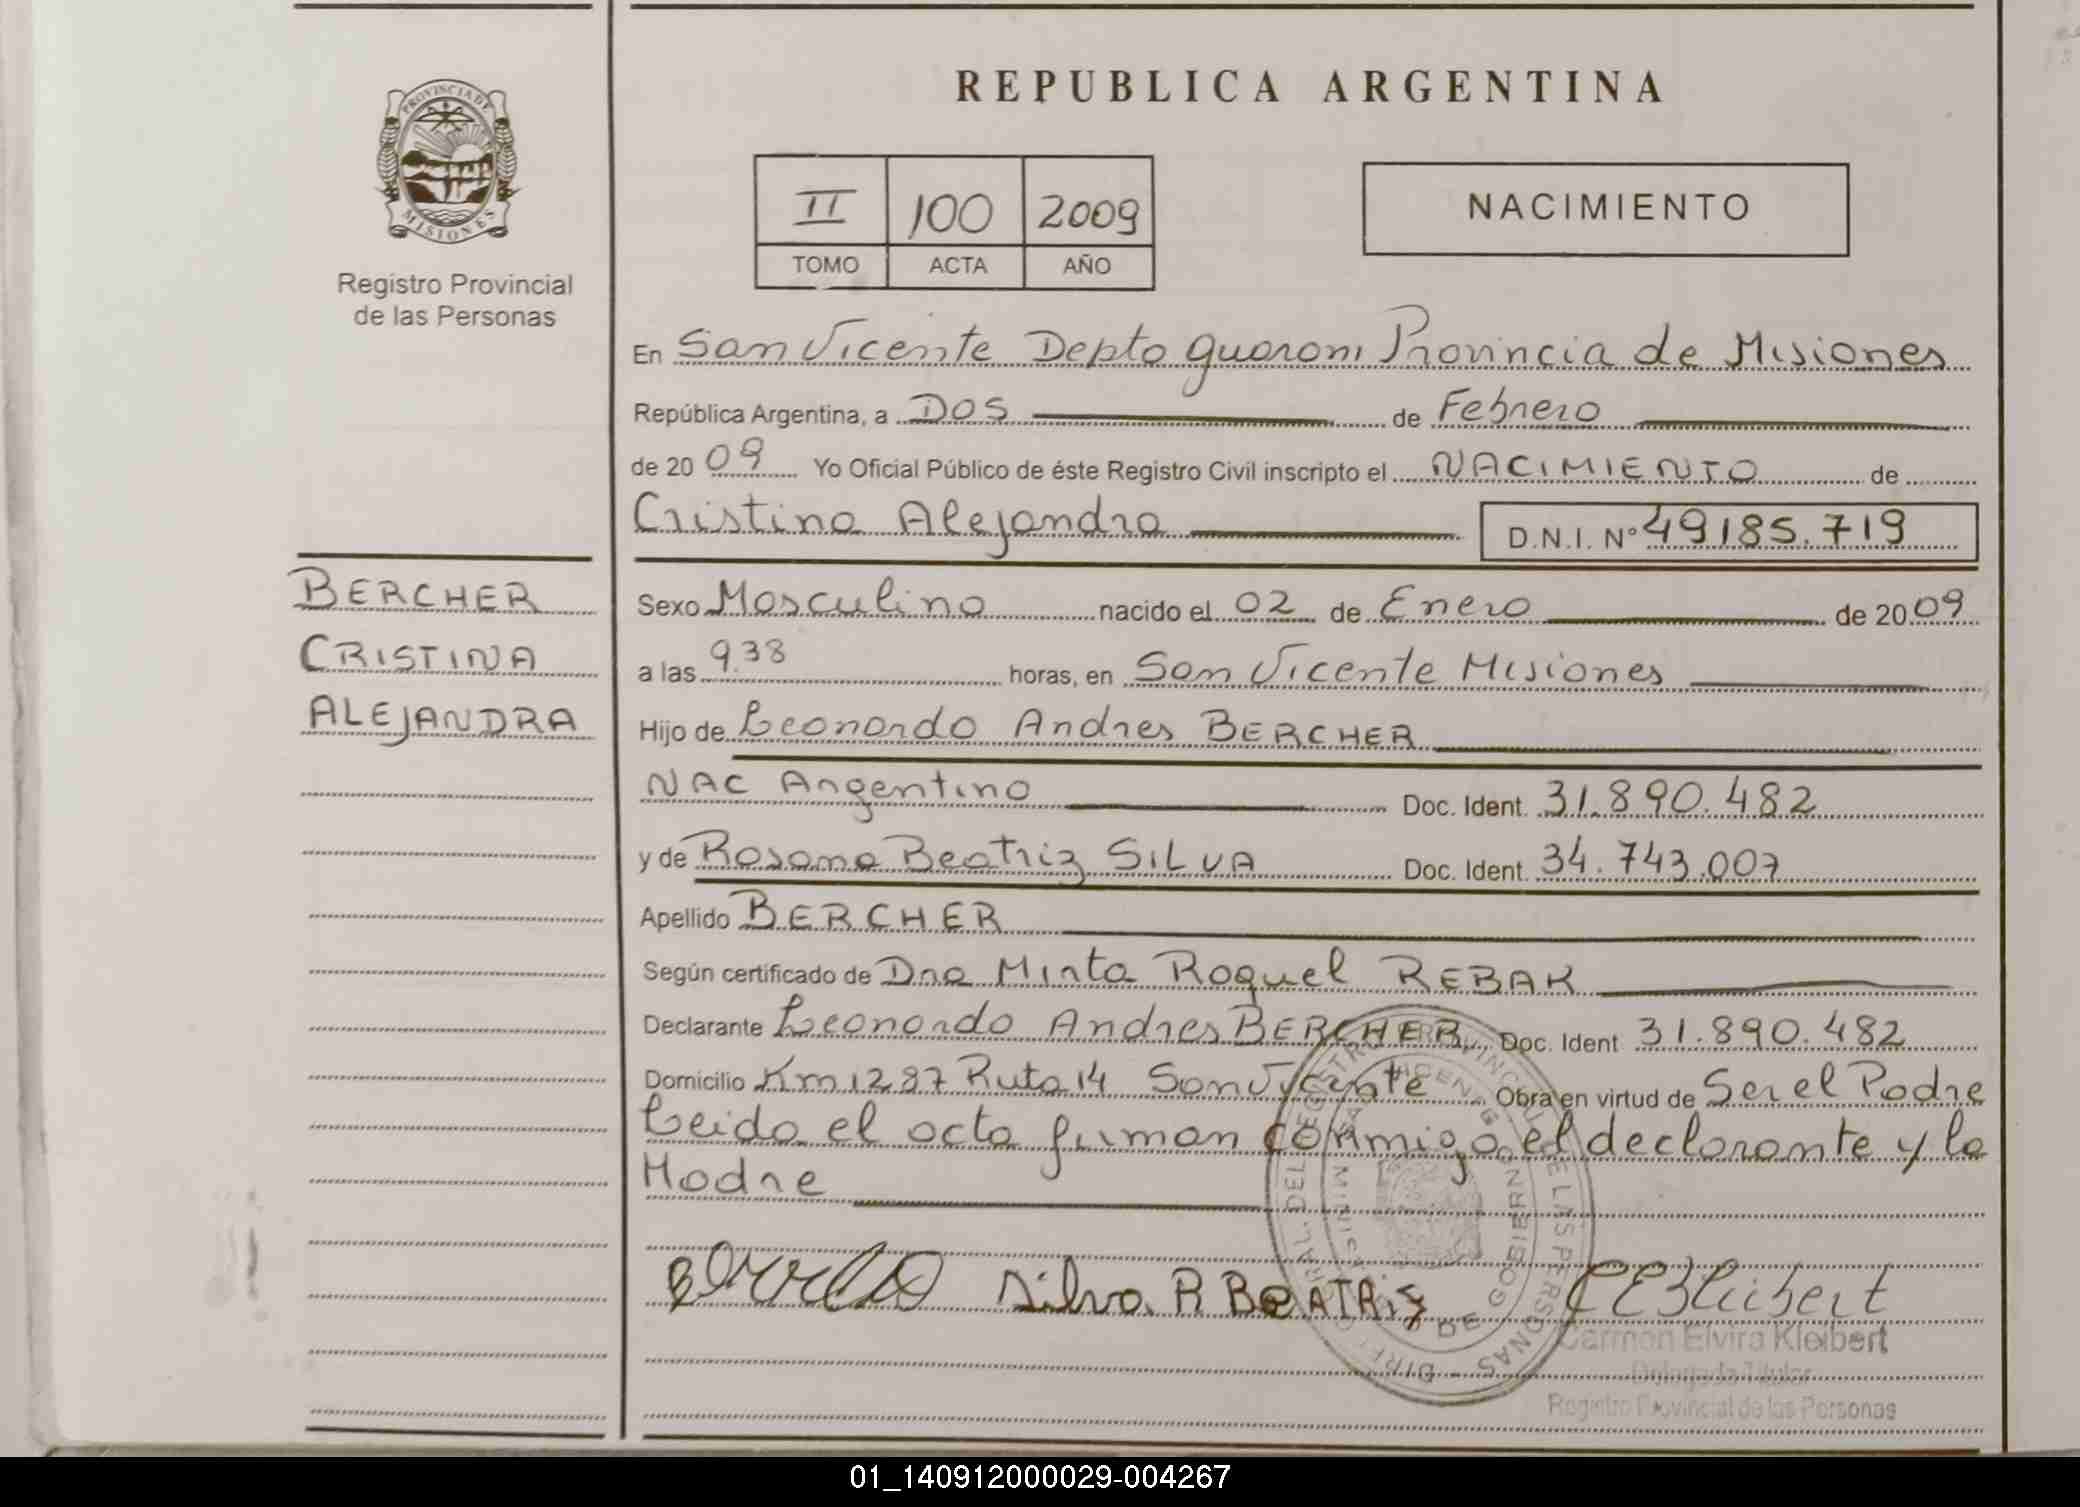 REPUBLICA ARGENTINA
PROVINCIA DE
MISIONES
Registro Provincial
de las Personas
II 100 2009
TOMO ACTA AÑO
NACIMIENTO
En San Vicente Depto Guarani Provincia de Misiones
República Argentina, a DOS de Febrero
de 20 09 Yo Oficial Público de éste Registro Civil inscripto el NACIMIENTO de
Cristina Alejandra D.N.I. Nº 49185.719
BERCHER
CRISTINA
ALEJANDRA
Sexo Masculino nacido el 02 de Enero de 20 09
a las 9.38 horas, en San Vicente Misiones
Hijo de Leonardo Andres BERCHER
NAC Argentino Doc. Ident. 31.890.482
y de Rosana Beatriz SILVA Doc. Ident. 34.743.007
Apellido BERCHER
Según certificado de Dra Mirta Raquel REBAK
Declarante Leonardo Andres BERCHER Doc. Ident 31.890.482
Domicilio Km 1287 Ruta 14 San Vicente Obra en virtud de Ser el Padre
Leida el acta firman conmigo el declarante y la
Madre
Silva R BEATRIZ CEKleibert
Carmen Elvira Kleibert
Delegada Titular
Registro Provincial de las Personas
01_140912000029-004267